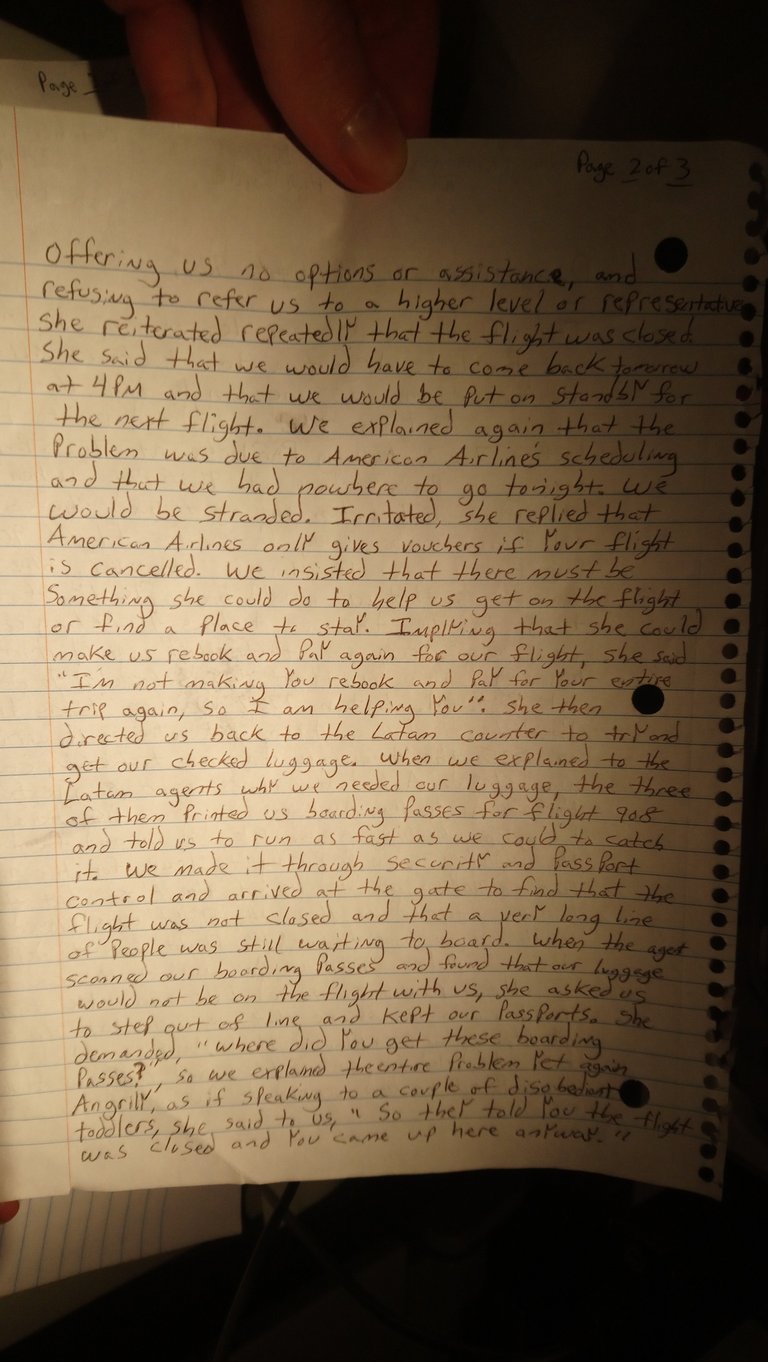 Page
Page 2 of 3
Offering us no options or assistance, and
refusing to refer us to a higher level or representative
She reiterated repeatedly that the flight was closed.
She said that we would have to come back tomorrow
at 4PM and that we would be put on standby for
the next flight. We explained again that the
Problem was due to American Airline's scheduling
and that we had nowhere to go tonight. We
would be stranded. Irritated, she replied that
American Airlines only gives vouchers if Your flight
is cancelled. We insisted that there must be
Something she could do to help us get on the flight
or find a Place to stay. Implying that she could
make us rebook and Pay again for our flight, she said
"I'm not making You rebook and Pay for Your entire
trip again, so I am helping You". She then
directed us back to the Latam counter to try and
get our checked luggage. When we explained to the
Latam agents why we needed our luggage, the three
of them Printed us boarding Passes for flight 908
and told us to run as fast as we could to catch
it. We made it through security and PassPort
control and arrived at the gate to find that the
flight was not closed and that a very long line
of People was still waiting to board. When the agent
scanned our boarding Passes and found that our luggage
would not be on the flight with us, she asked us
to step out of line and kept our PassPorts. She
demanded, "where did You get these boarding
Passes?", so we explained the entire Problem Yet again
Angrily, as if speaking to a couple of disobedient
toddlers, she said to us, "So they told You the flight
was closed and You came up here anyway."